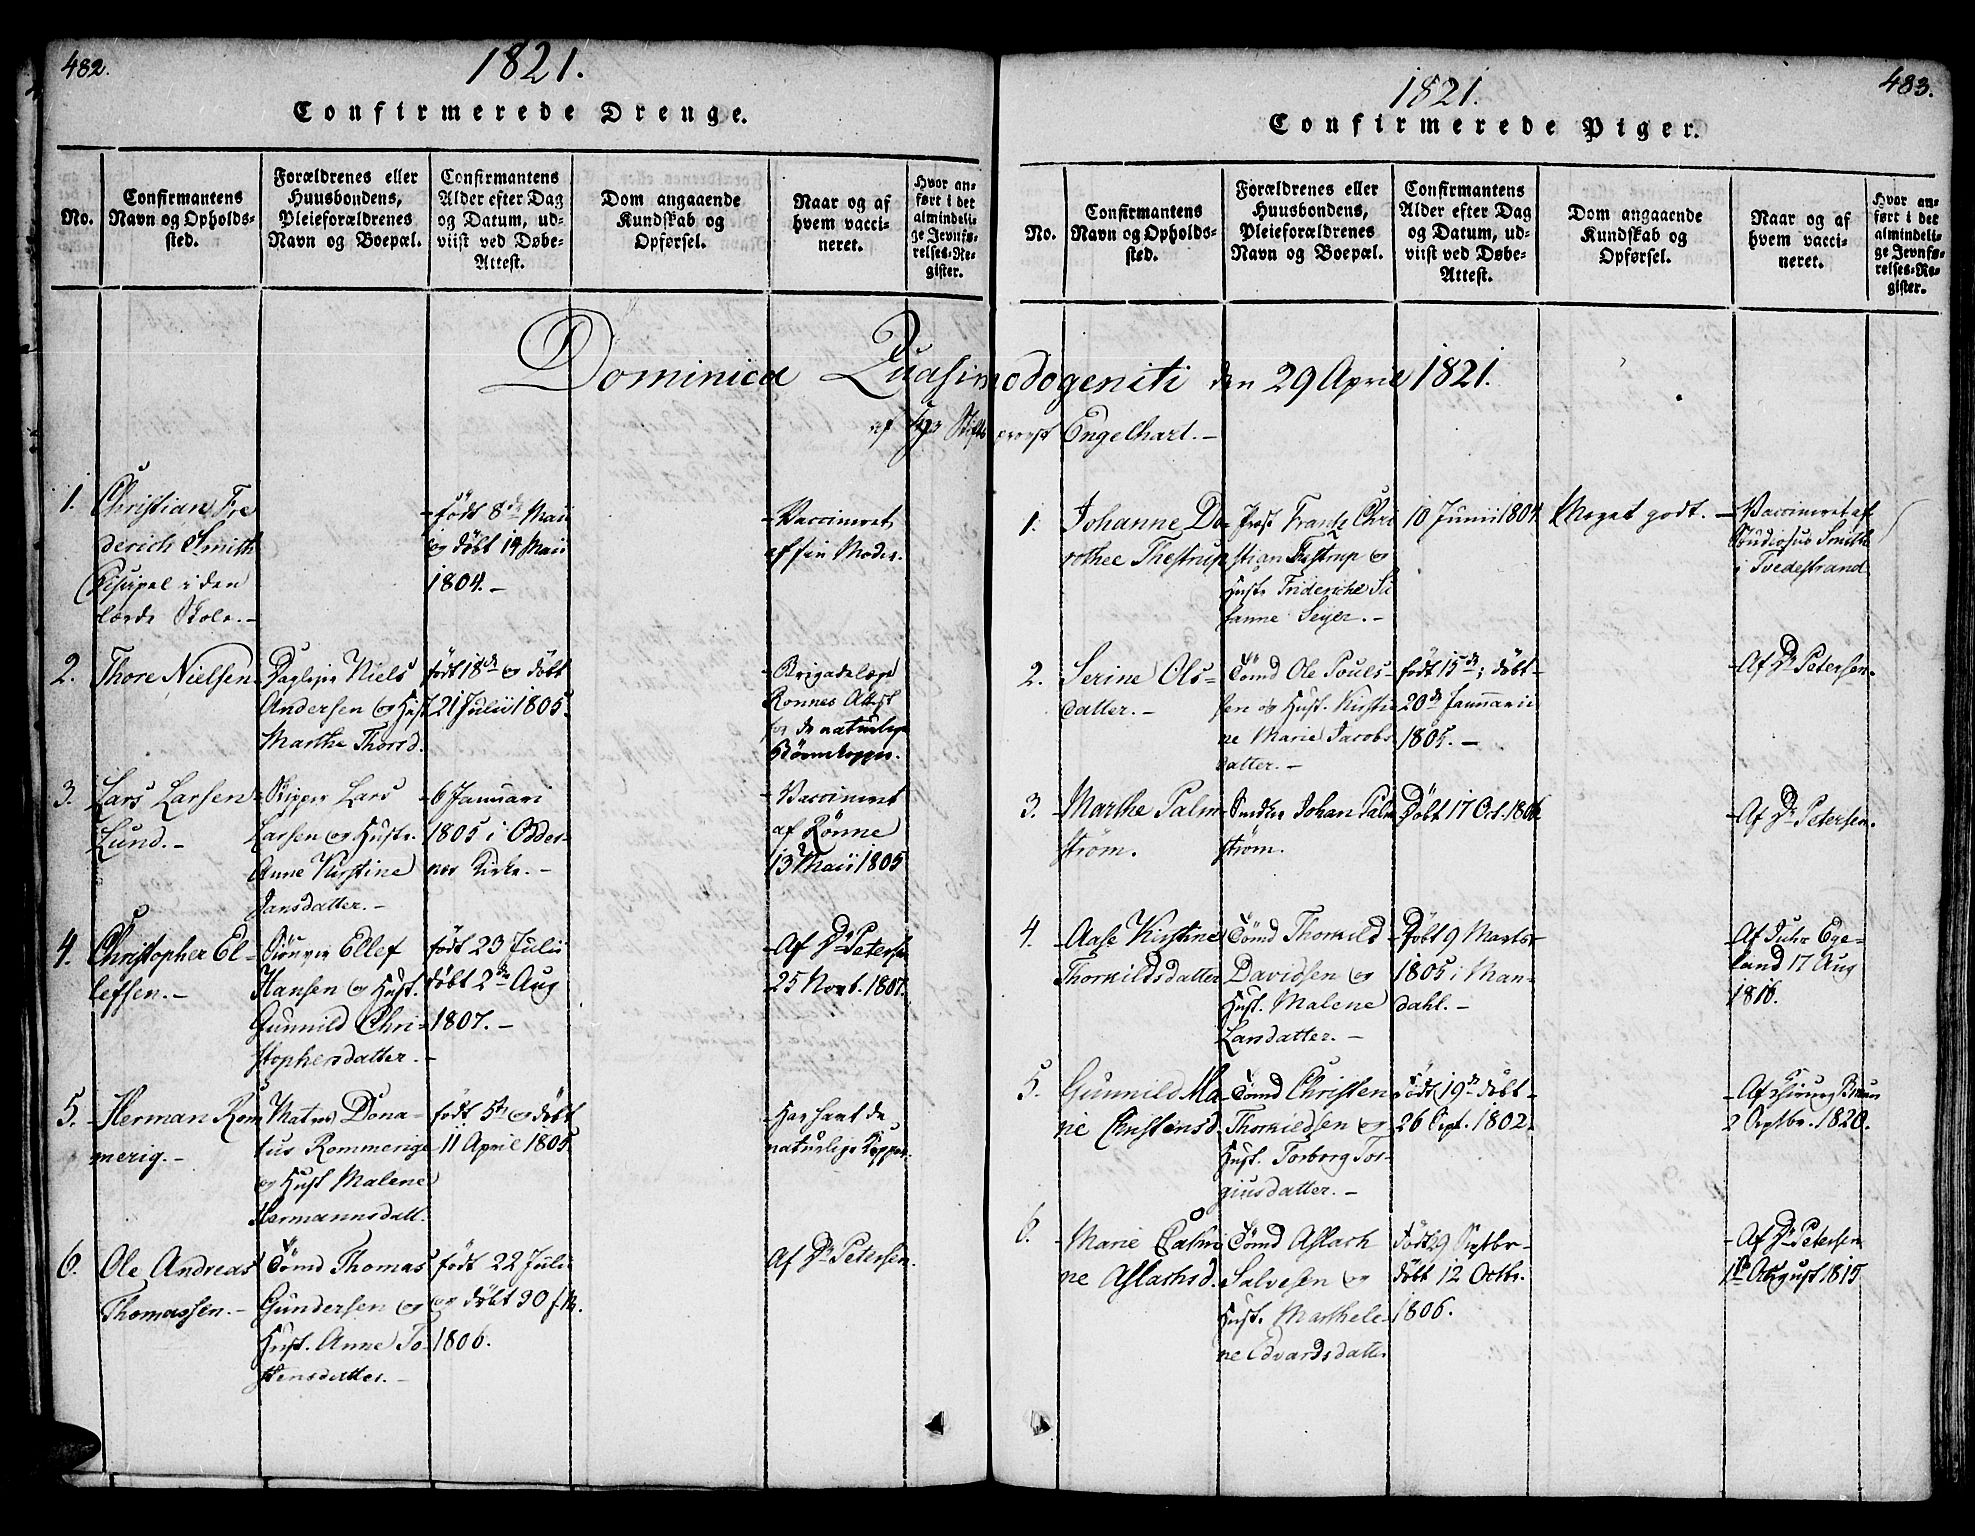 482.
1821.
Confirmerede Drenge.
No.
Confirmantens
Navn og Opholds-
sted.
Forældrenes eller
Huusbondens,
Pleieforældrenes
Navn og Boepæl.
Confirmantens
Alder efter Dag
og Datum, ud-
viist ved Døbe-
Attest.
Dom angaaende
Kundskab og
Opførsel.
Naar og af
hvem vacci-
neret.
Hvor an-
ført i det
almindeli-
ge Jevnfø-
relses-Re-
gister.
Dominica Quasimodogeniti den 29 April 1821.
af Stifts provst Engelhart. -
1.
Christian Fre
derich Smith
Discipel i den
lærde Skole. -
født 8de Maii
og døbt 14 Maii
1804. -
Vaccineret
af sin Moder.
2.
Thore Nielsen
Daglejer Niels
Andersen og Hust
Marthe Thorsd.
født 18de og døbt
21 Julii 1805.
Brigadelæge
Ronnes Attest
for de naturlige
Børnekopper.
3.
Lars Larsen
Lund. -
Skipper Lars
Larsen og Hustr.
Anne Kirstine
Jansdatter. -
6 Januari
1805 i Odder-
nes Kirke. -
Vaccineret
af Rönne
13 Maii 1805
4.
Christopher El-
lefsen. -
Ellef
Hansen og Hust.
Gunnild Chri-
stophersdatter. -
født 23 Julii
døbt 2den Aug
1807. -
Af Dr Petersen
25 Novb. 1807.
5.
Herman Rom
merig. -
Matros Dona-
tus Rommerige
og Hust Malene
Hermannsdatt.
født 5te og døbt
11 April 1805
Har havt de
naturlige Kopper.
6.
Ole Andreas
Thomassen. -
Tömd Thomas
Gundersen og
Hust. Anne To-
stensdatter. -
født 22 Juli
og døbt 30 f. M.
1806.
Af Dr Petersen.
483.
1821.
Confirmerede Piger.
No.
Confirmantens
Navn og Opholds-
sted.
Forældrenes eller
Huusbondens,
Pleieforældrenes
Navn og Boepæl.
Confirmantens
Alder efter Dag
og Datum, ud-
viist ved Døbe-
Attest.
Dom angaaende
Kundskab og
Opførsel.
Naar og af
hvem vacci-
neret.
Hvor an-
ført i det
almindeli-
ge Jevnfø-
relses-Re-
gister.
1.
Johanne Do-
rothee Thestrup
Provst Frantz Chri
stian Testrup og
Hustr Frideriche Su
sanne Sejer. -
10 Junii 1804.
Meget godt. -
Vaccineret af
Studiosus Smith
i Tvedestrand
2.
Serine Ols-
datter. -
Tömd Ole Pouls-
sen og Hust. Kirsti-
ne Marie Jacobs
datter. -
født 15de; døbt
20de Januarii
1805. -
Af Dr Petersen.
3.
Marthe Palm-
strøm.
Snedker Johan Palm
strøm.
Døbt 17 Oct. 1806
Af Dr Petersen.
4.
Aase Kirstine
Thorkildsdatter
Tömd Thorkild
Davidsen og
Hust. Malene
Larsdatter. -
Døbt 9 Marts
1805 i Man-
dahl. -
Af Ege-
land 17 Aug
1816.
5.
Gunnild Ma
ne Christensd.
Tömd Christen
Thorkildsen og
Hust. Torborg Tor-
giusdatter. -
Født 19de døbt
26 Sept. 1802.
Af Chirurg Braun
2 Septbr. 1820.
6.
Marie Cathri
ne Aslachsd.
Tömd Aslach
Salvesen og
Hust. Marthele-
ne Edvardsdatter
Født 29 Septbr
døbt 12 Octbr.
1806.
Af Dr Petersen
1ste August 1815